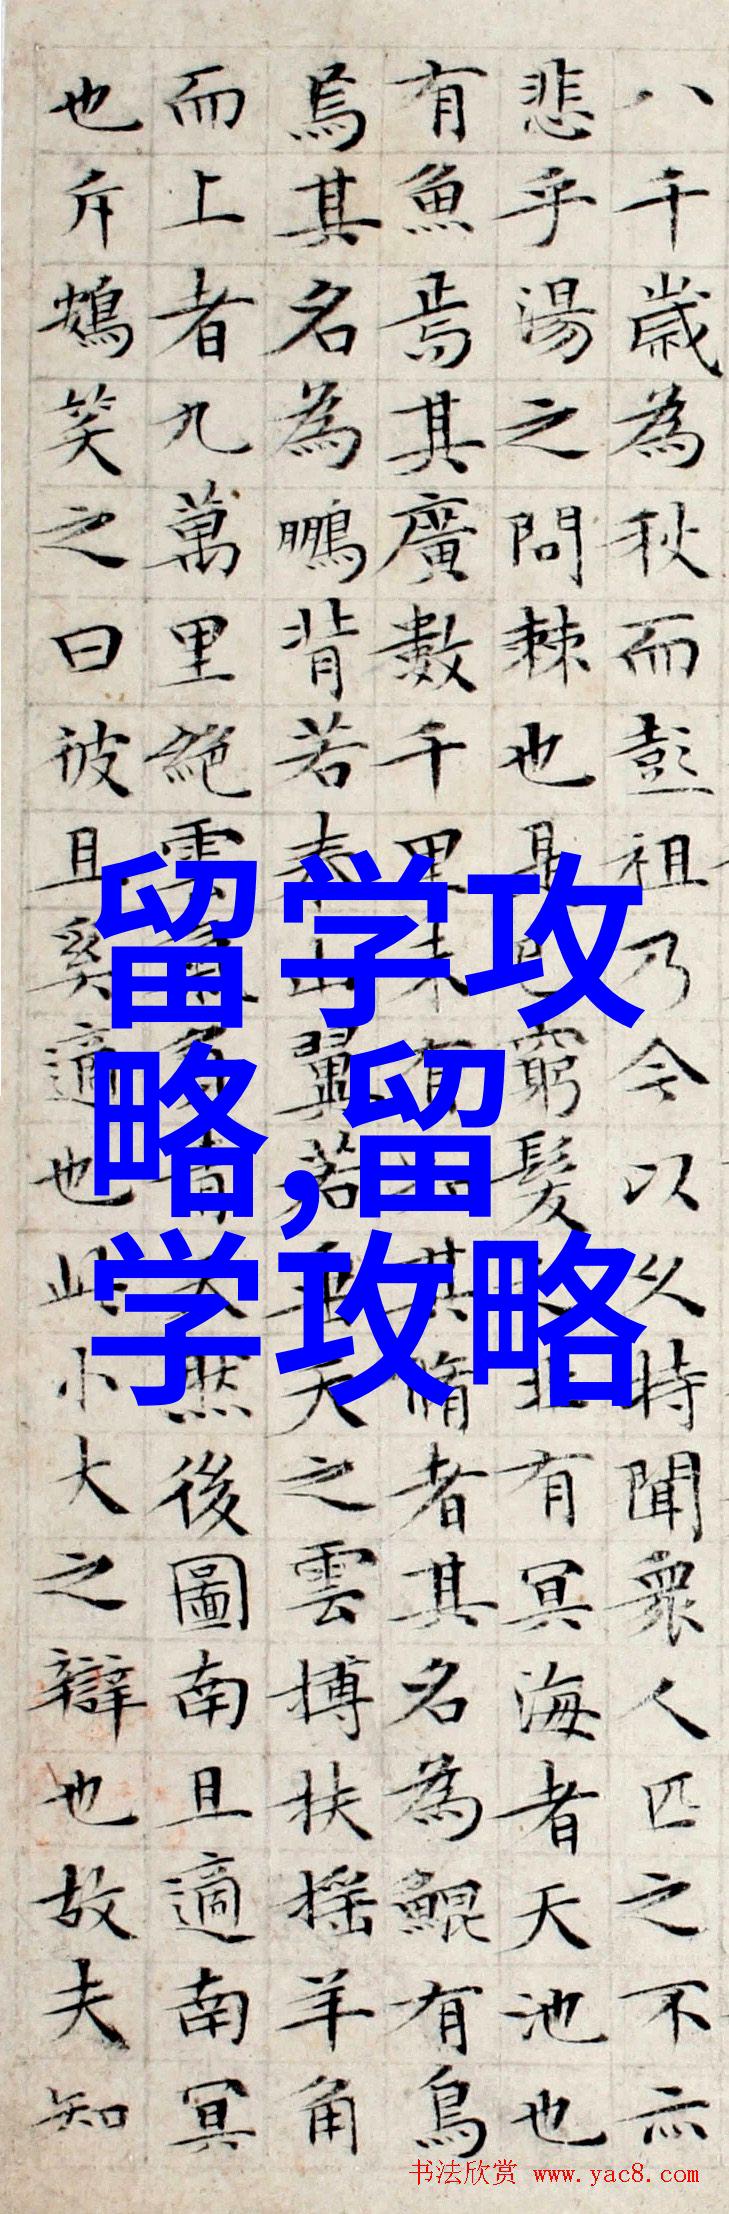 八千歲為秋而彭祖乃今以久特聞衆人匹之不亦
悲乎湯之問棘也是已窮髮之北有冥海者天池也
有魚焉其廣數千里未有知其脩者其名為鯤有鳥
焉其名為鵬背若泰山翼若垂天之雲搏扶摇羊角
而上者九萬里絕雲氣負青天然後圖南且適南冥
也斥鴳笑之曰彼且奚適也此小大之辯也故夫知
留学攻
略,留
学攻略
书法欣赏 www.yac8.com